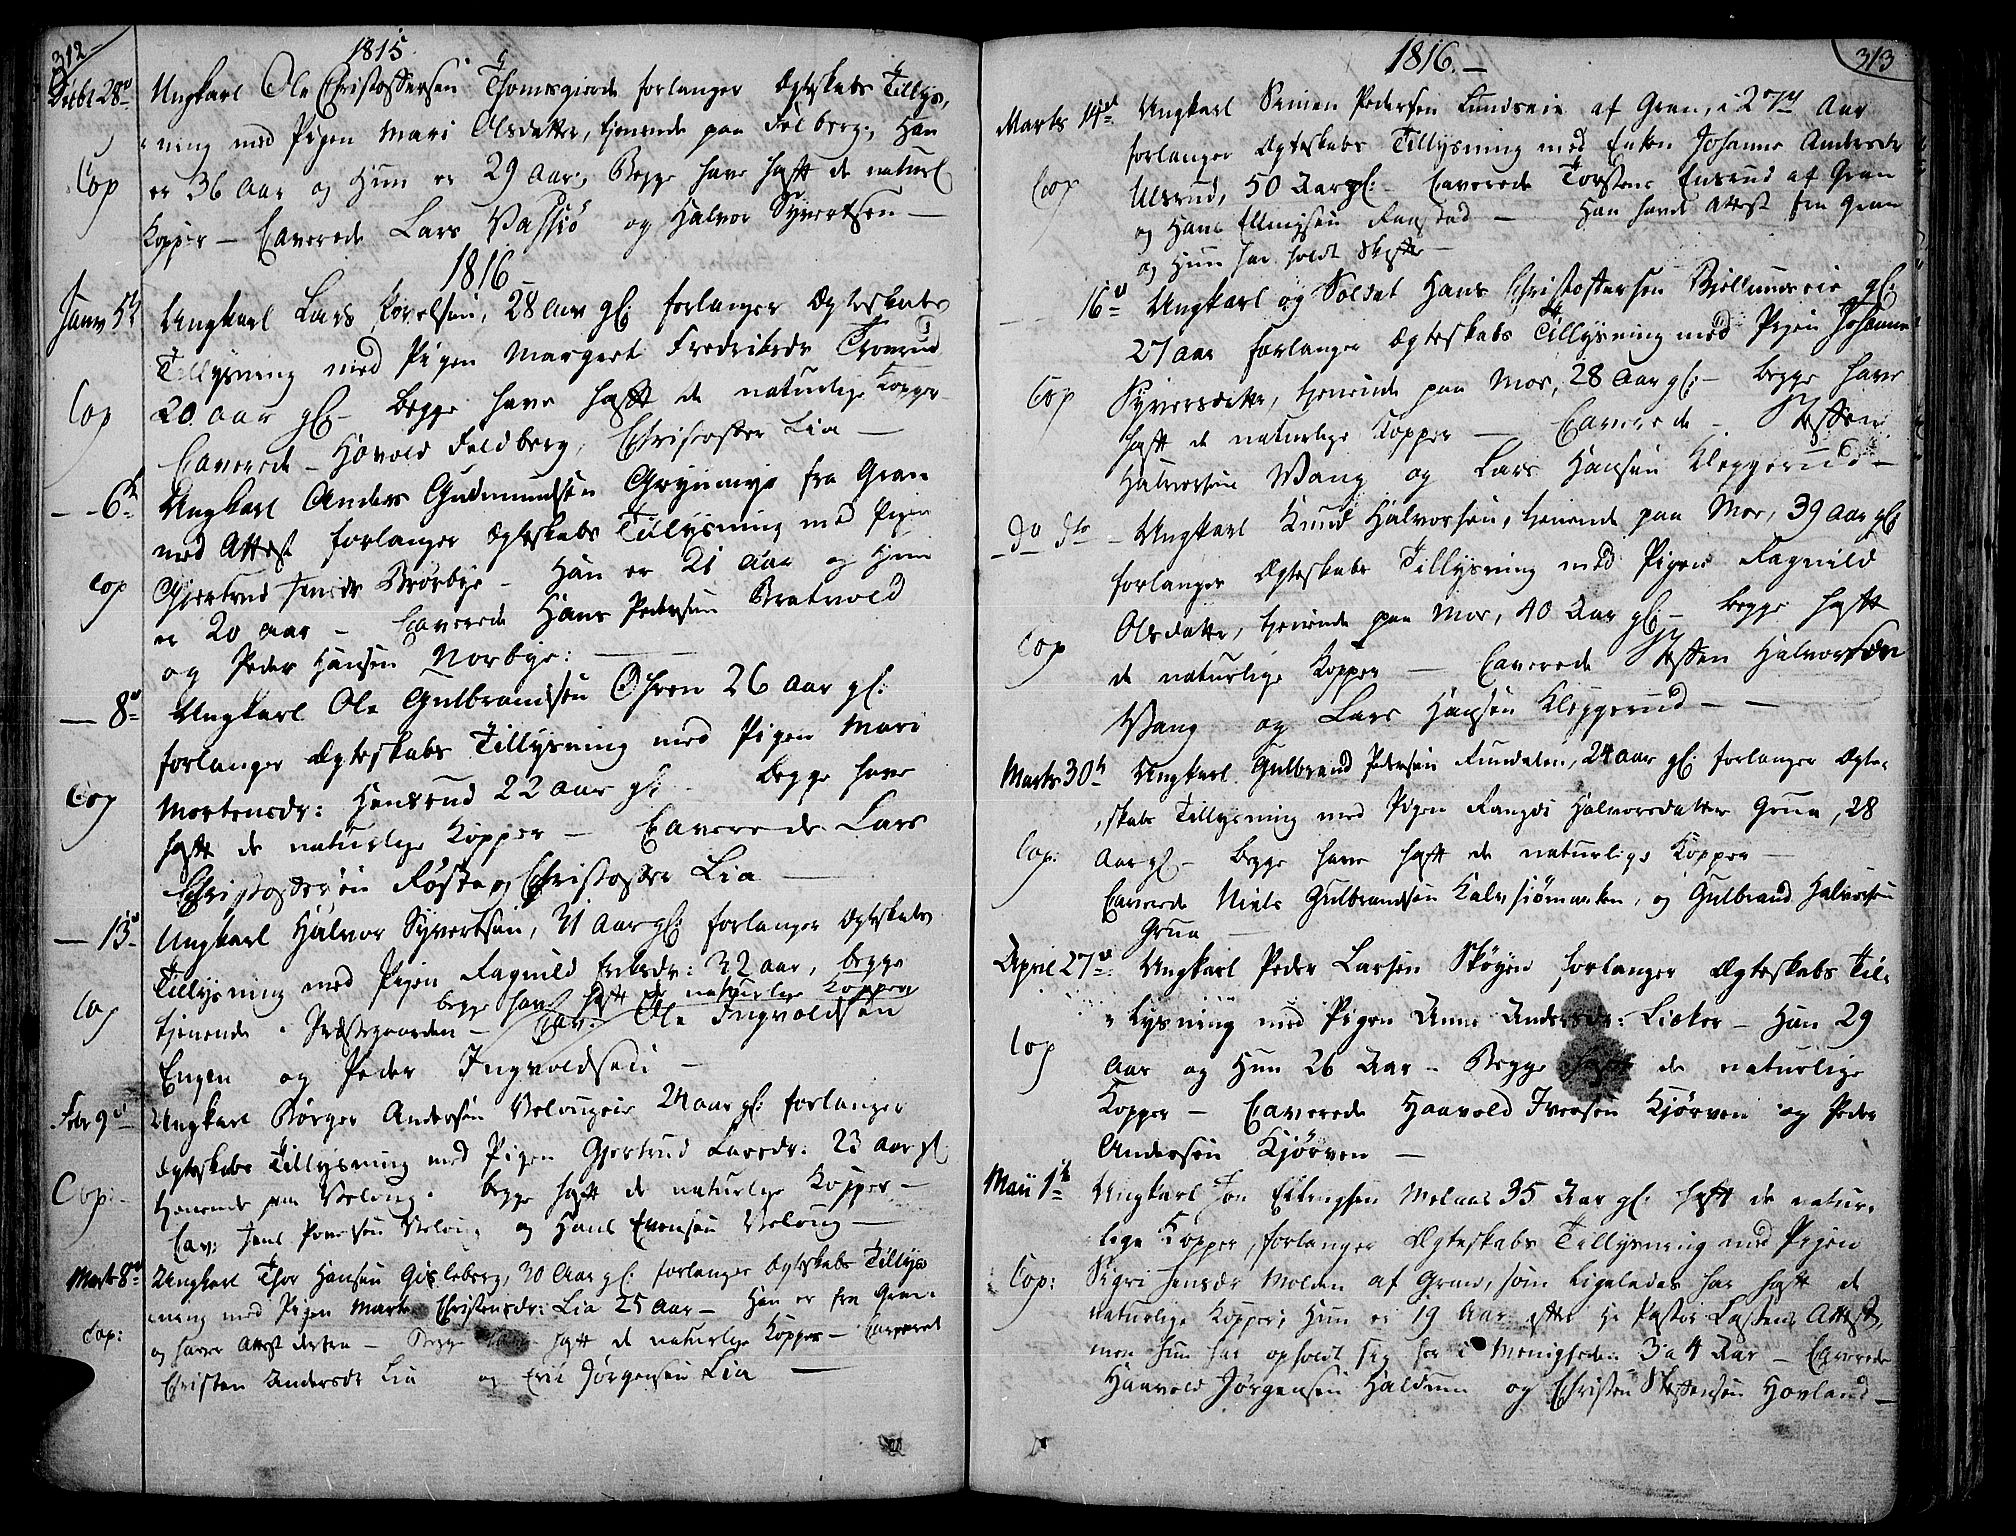 312
1815
Decbr 28de Ungkarl Ole Christophersen Thomsgierde forlanger Ægteskabs Tillys,
ning med Pigen Mari Olsdatter, tjenende paa Felberg; Han
Cop er 36 Aar og Hun er 29 Aar; Begge have haft de naturl
Kopper — Caverede Lars Vassiø og Halvor Syvertsen —
1816
Janv 5te Ungkarl Lars Povelsen, 28 Aar gl: forlanger Ægteskabs
Tillysning med Pigen Margret Fredriksdr
Cop 20 Aar gl — Begge have haft de naturlige Kopper
Caverede — Hovold Feldberg, Christoffer Lia —
— 6te Ungkarl Anders Gudmundsen Grynning fra Gran
med Attest forlanger Ægteskabs Tillysning med Pigen
Cop Gjertrud Jensdr Brørbye — Han er 21 Aar og Hun
er 20 Aar — Caverede Hans Pedersen Bratvold
og Peder Hansen Norbye: —
— 8de Ungkarl Ole Gulbrandsen Ohren 26 Aar gl:
forlanger Ægteskabs Tillysning med Pigen Mari
Cop Mortensdr: Hensrud 22 Aar gl — Begge have
haft de naturlige Kopper — Caverede Lars
Christophersen Røste og Christoffer Lia —
— 13de Ungkarl Halvor Syvertsen, 31 Aar gl: forlanger Ægteskabs
Tillysning med Pigen Ragnild Eriksdr: 32 Aar, begge
begge have haft de naturlige Kopper
Cop tjenende i Præstegaarden — Cav: Ole Ingvoldsen
Engen og Peder Ingvoldsen —
Febr 9de Ungkarl Børger Andersen Velongeie 24 Aar gl: forlanger
Ægteskabs Tillysning med Pigen Gjertrud Larsdr: 23 Aar gl
Cop: tjenende paa Velong. Begge haft de naturlige Kopper —
Cav: Jens Povelsen Velong og Hans Evensen Velong —
Marts 8de Ungkarl Thor Hansen Gisleberg, 30 Aar gl: forlanger Ægteskabs Tillys
ning med Pigen Marte Christensdr: Lia 25 Aar — Han er fra Gran
Cop: og haver Attest derfra — Begge have haft de naturlige Kopper — Caveret
Christen Andersen Lia og Eric Jørgensen Lia —
313
1816. —
Marts 14de Ungkarl Simen Pedersen Lundseie af Gran, i 27de Aar
forlanger Ægteskabs Tillysning med Enken Johanne Andersdr
Cop Ulsrud, 50 Aar gl: — Caverede Torsten Ensrud af Gran
og Hans Ellingsen Raastad — Han havde Attest fra Gran
og Hun har holdt Skifte
— 16de Ungkarl og Soldat Hans Christophersen Bjellumseie gl:
27 Aar forlanger Ægteskabs Tillysning med Pigen Johanne
Cop Syversdatter, tjenende paa Mor, 28 Aar gl: — Begge have
haft de naturlige Kopper — Caverede — Steffen
Halvorsen Vang og Lars Hansen Kleggerud —
— do do — Ungkarl Knud Halvorsen, tjenende paa Mor, 39 Aar gl:
forlanger Ægteskabs Tillysning med Pigen Ragnild
Cop Olsdatter, tjenende paa Mor, 40 Aar gl: — Begge haft
de naturlige Kopper — Caverede Steffen Halvorsen
Vang og Lars Hansen Kleggerud — —
Marts 30te Ungkarl Gulbrand Pedersen Rundelen, 24 Aar gl: forlanger Ægte,
skabs Tillysning med Pigen Rangdi Halvorsdatter Grua, 28
Cop: Aar gl — Begge have haft de naturlige Kopper —
Caverede Niels Gulbrandsen Kalvsiømarken, og Gulbrand Halvorsen
Grua —
April 27de: Ungkarl Peder Larsen Skøyen forlanger Ægteskabs Til,
lysning med Pigen Anne Andersdr: Lieker — Han 29
Cop Aar og Hun 26 Aar — Begge haft de naturlige
Kopper — Caverede Haavold Iversen Kjørven og Peder
Andersen Kjørven —
Maii 1te Ungkarl Jon Ellingsen Melaas 35 Aar gl: haft de natur,
lige Kopper, forlanger Ægteskabs Tillysning med Pigen
Cop: Sigri Hansdr Molden af Gran, som ligeledes har haft de
naturlige Kopper; Hun er 19 Aar efter Hr Pastor Lassens Attest,
men hun har opholdt sig her i Menigheden 3 a 4 Aar — Caverede
Haavold Jørgensen Haldum og Christen Steffensen Hovland —